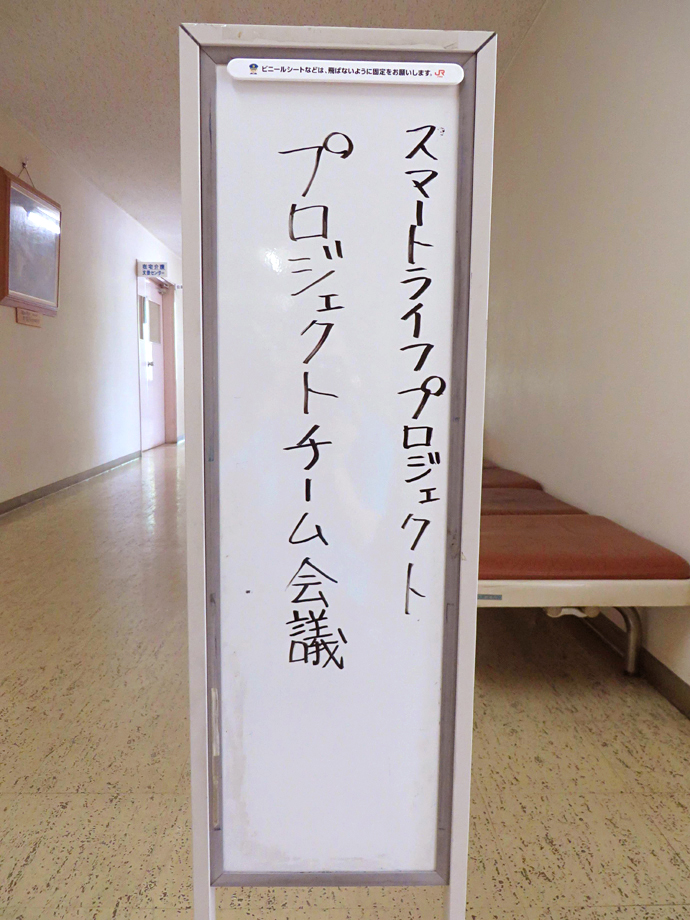 ビニールシートなどは、飛ばないように固定をお願いします。JR
スマートライフプロジェクト
プロジェクトチーム会議